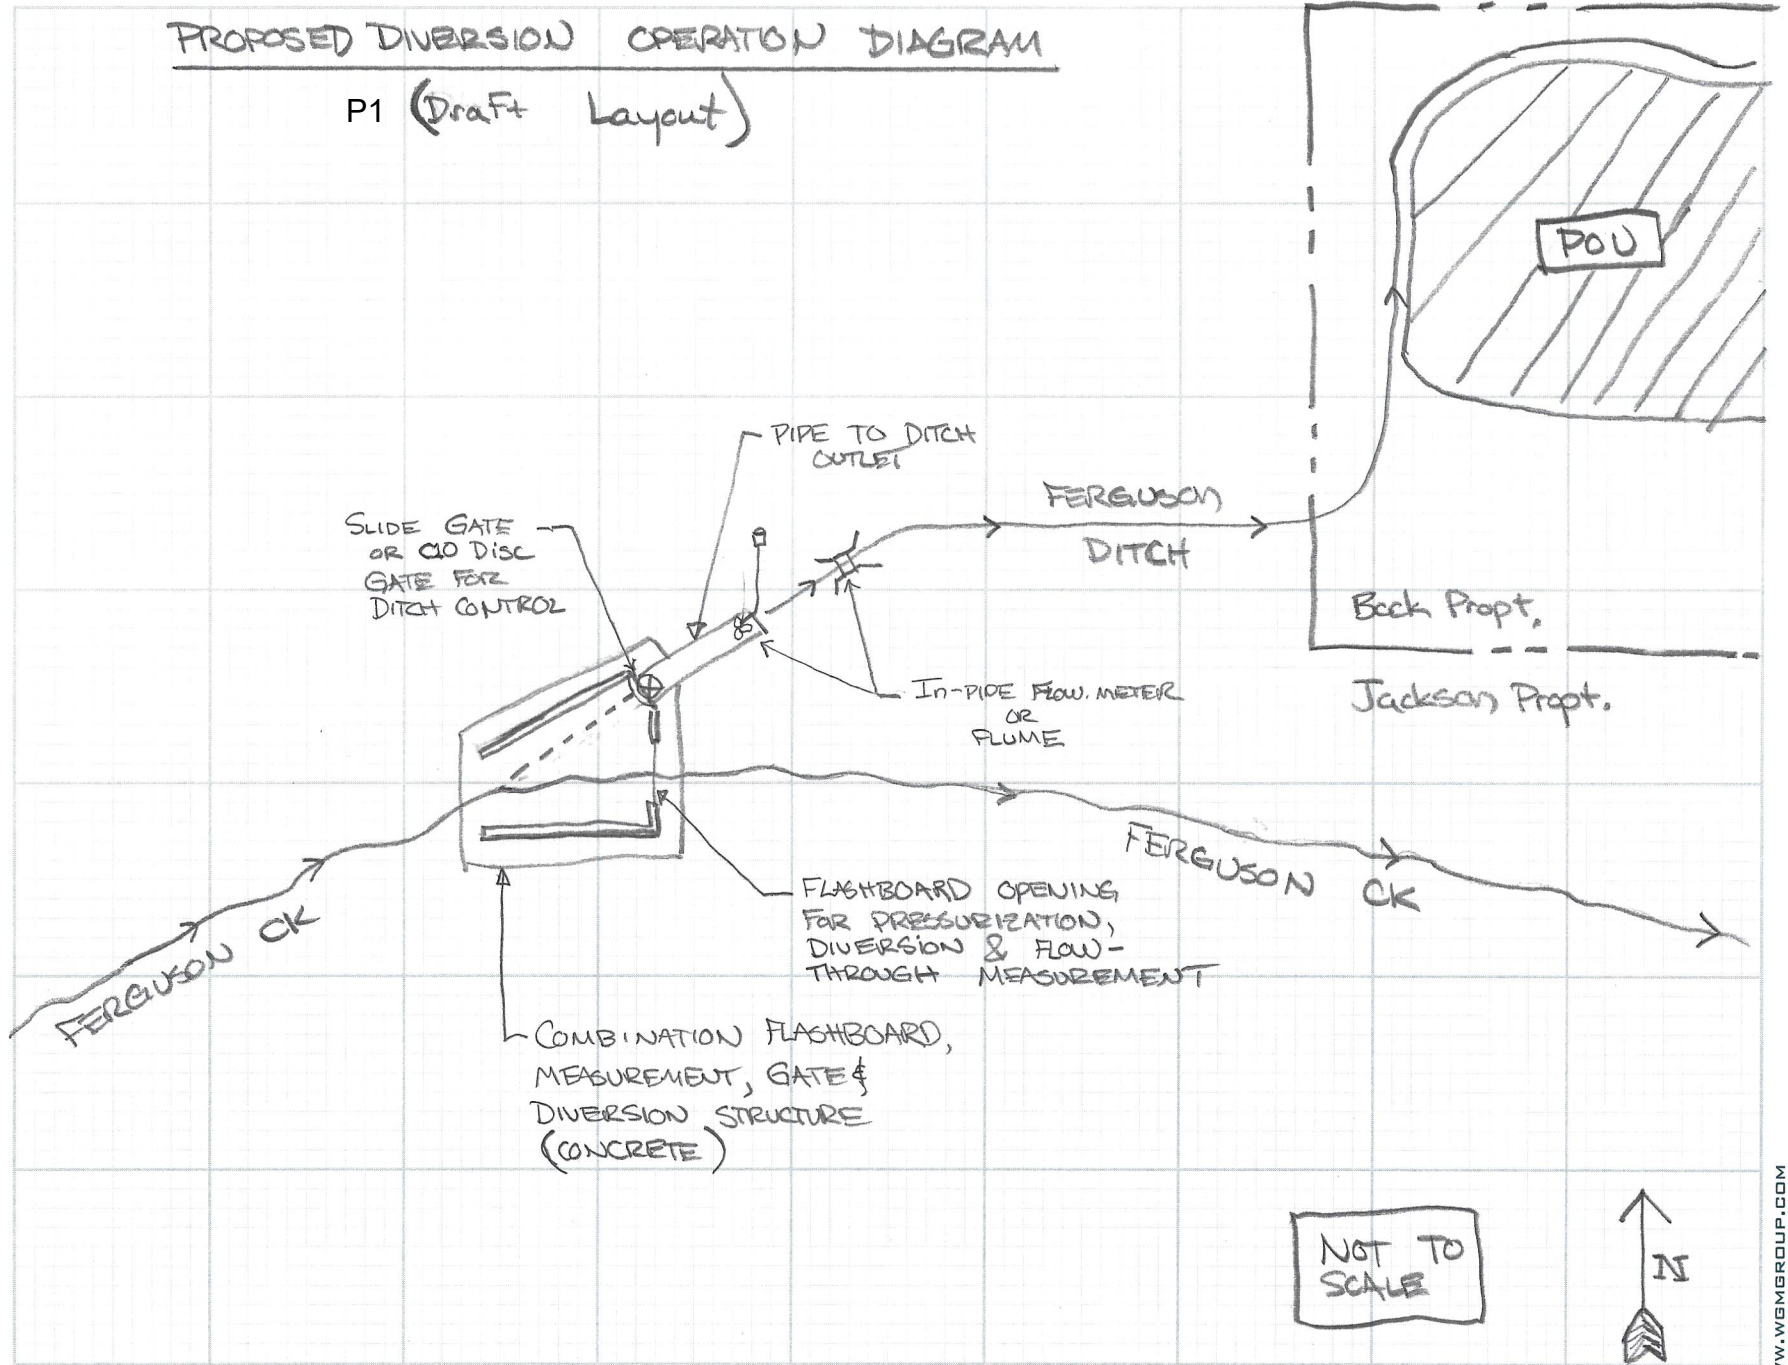 PROPOSED DIVERSION OPERATION DIAGRAM
P1 (Draft Layout)
POU
PIPE TO DITCH
OUTLET
SLIDE GATE
OR DISC
GATE FOR
DITCH CONTROL
FERGUSON
DITCH
Beck Propt.
Jackson Propt.
In-PIPE FLOW METER
OR
FLUME
FERGUSON CK
FERGUSON CK
FLASHBOARD OPENING
FOR PRESSURIZATION,
DIVERSION & FLOW-
THROUGH MEASUREMENT
COMBINATION FLASHBOARD,
MEASUREMENT, GATE &
DIVERSION STRUCTURE
(CONCRETE)
NOT TO
SCALE
N
W.WGMGROUP.COM